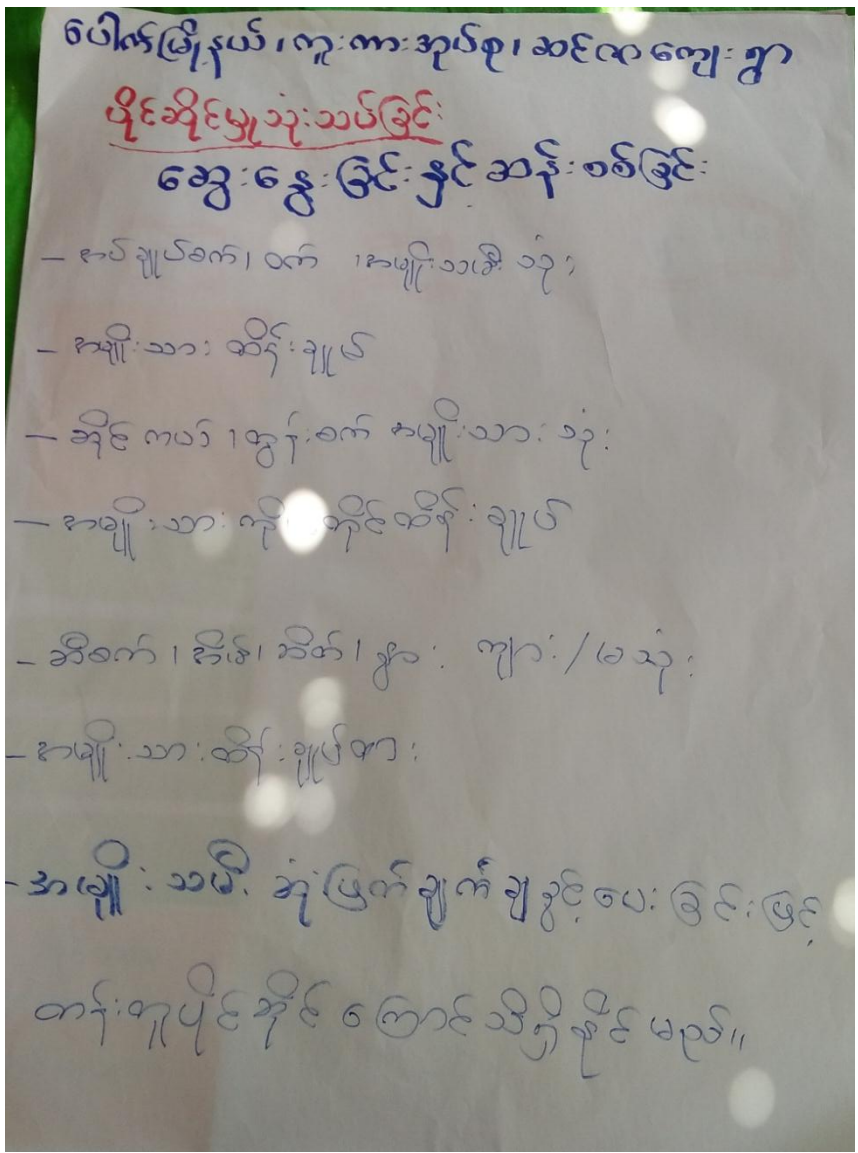 ပေါက်မြို့နယ်၊ ကူးကားအုပ်စု၊ ဆင်လကျေးရွာ
ပိုင်ဆိုင်မှုသုံးသပ်ခြင်း
ဆွေးနွေးခြင်းနှင့် ဆန်းစစ်ခြင်း
- အပ်ချုပ်စက်၊ ဝက် ၊ အမျိုးသမီး သုံး
- အမျိုးသား ထိန်းချုပ်
- ဆိုင်ကယ် ၊ ထွန်းစက် အမျိုးသား သုံး
- အမျိုးသား ကိုင်ထိန်းချုပ်
- ဆီစက် ၊ အိမ် ၊ ဆိတ် ၊ နွား ကျား/မ သုံး
- အမျိုးသား ထိန်းချုပ်ထား
- အမျိုးသမီး ဆုံးဖြတ်ချက်ချခွင့်ပေးခြင်းဖြင့်
တန်းတူပိုင်ဆိုင်ကြောင်သိရှိနိုင်မည်။